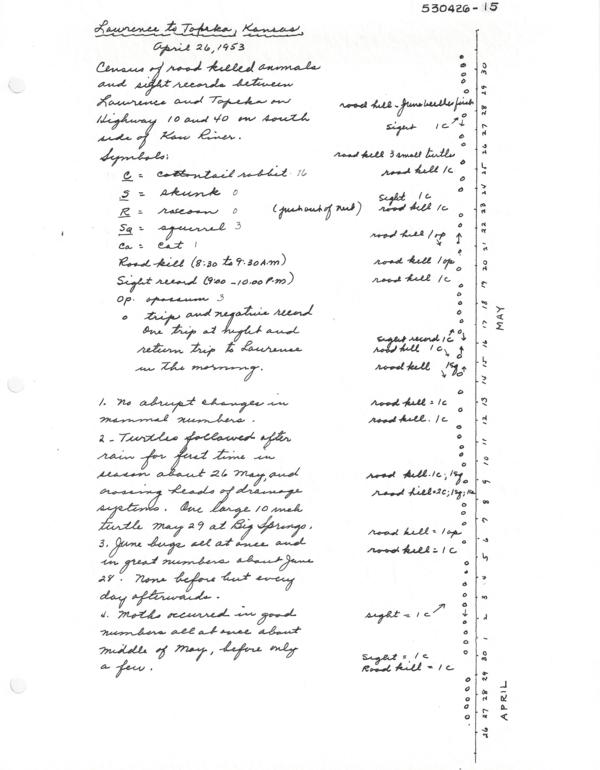 530426-15
Lawrence to Topeka, Kansas,
April 26, 1953
Census of road killed animals
and sight records between
Lawrence and Topeka on
Highway 10 and 40 on south
side of Kaw River.
Symbols:
C = cottontail rabbit 16
S = skunk 0
R = racoon 0
Sq = squirrel 3
Ca = cat 1
Road kill (8:30 to 9:30 A.M)
Sight record (9:00 - 10:00 P.M)
Op. opossum 3
o trip and negative record
One trip at night and
return trip to Lawrence
in the morning.
1. No abrupt changes in
mammal numbers.
2 - Turtles followed after
rain for first time in
season about 26 May, and
crossing heads of drainage
systems. One large 10 inch
turtle May 29 at Big Springs.
3. June bugs all at once and
in great numbers about June
28. None before but every
day afterwards.
4. Moths occurred in good
numbers all at once about
middle of May, before only
a few.
road kill - June beetles first
Sight 1C
road kill 3 small turtle
road kill 1C
Sight 1C
(just out of nest) road kill 1C
road kill 1 op
road kill 1 op
road kill 1C
Sight record 1C
road kill 1C
road kill 1Sq
road kill = 1C
road kill. 1C
road kill. 1C; 1Sq
road kill = 2C; 1Sq;
road kill = 1 op
road kill = 1C
sight = 1C
Sight = 1C
Road kill = 1C
30
29
28
27
26
25
24
23
22
21
20
19
18
17
16
15
14
13
12
11
10
9
8
7
6
5
4
3
2
1
30
29
28
27
26
MAY
APRIL